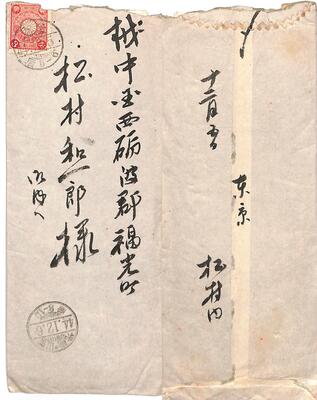 越中国西砺波郡福光町
松村和一郎様
御内へ
44.12.6
十二月五日
東京
松村内